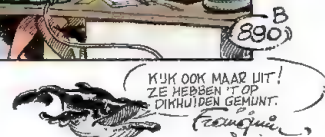 B
890
KIJK OOK MAAR UIT!
ZE HEBBEN 'T OP
DIKHUIDEN GEMUNT.
Franquin